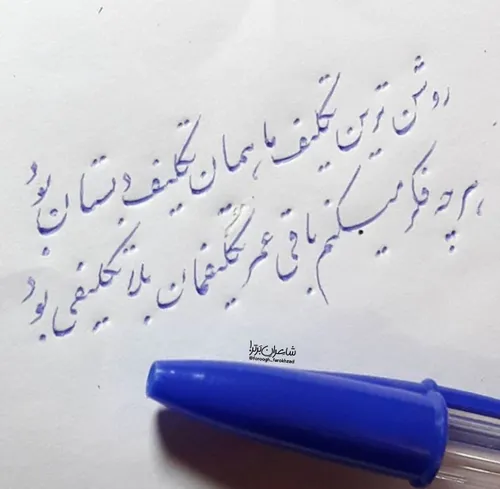 روشن ترین تکلیف ما، همان تکلیف دبستان بود
هرچه فکر میکنم باقی عمر تکلیفمان بلاتکلیفی بود
شاعران برتر
@foroogh_farokhzad